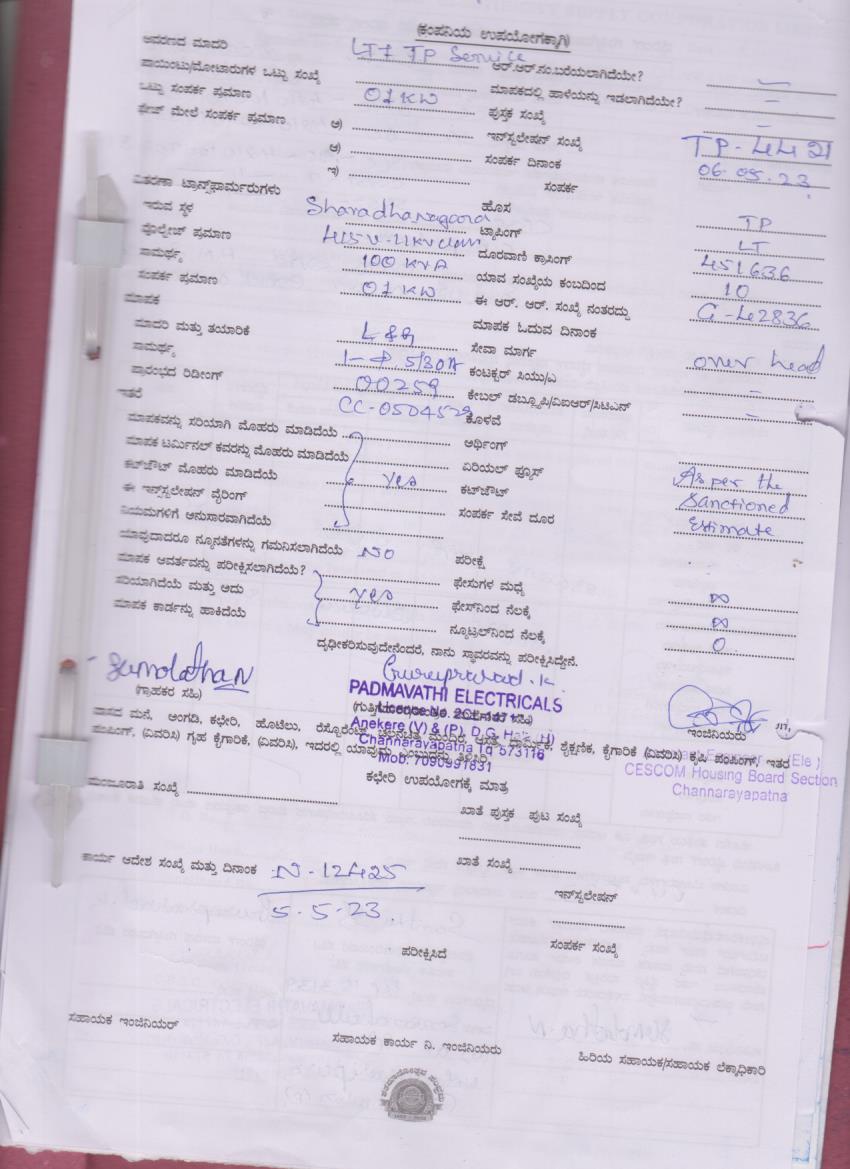 (ಕಂಪನಿಯ ಉಪಯೋಗಕ್ಕಾಗಿ)
ಆವರಣದ ಮಾದರಿ LT7 TP Service ಆರ್.ಆರ್.ನಂ.ಬರೆಯಲಾಗಿದೆಯೇ? -
ಪಾಯಿಂಟು/ಮೋಟಾರುಗಳ ಒಟ್ಟು ಸಂಖ್ಯೆ ಮಾಪಕದಲ್ಲಿ ಹಾಳೆಯನ್ನು ಇಡಲಾಗಿದೆಯೇ? -
ಒಟ್ಟು ಸಂಪರ್ಕ ಪ್ರಮಾಣ 01KW ಪುಸ್ತಕ ಸಂಖ್ಯೆ -
ಫೇಜ್ ಮೇಲೆ ಸಂಪರ್ಕ ಪ್ರಮಾಣ ಅ) ಇನ್‌ಸ್ಟಲೇಷನ್ ಸಂಖ್ಯೆ TP-44
ಆ) ಸಂಪರ್ಕ ದಿನಾಂಕ 06.05.23
ಇ) ಸಂಪರ್ಕ
ವಿತರಣಾ ಟ್ರಾನ್ಸ್‌ಫಾರ್ಮರುಗಳು ಹೊಸ TP
ಇರುವ ಸ್ಥಳ Sharadhanagara ಟ್ಯಾಪಿಂಗ್ LT
ವೋಲ್ಟೇಜ್ ಪ್ರಮಾಣ 415V-11KV class ದೂರವಾಣಿ ಕ್ರಾಸಿಂಗ್ 451636
ಸಾಮರ್ಥ್ಯ 100 KVA ಯಾವ ಸಂಖ್ಯೆಯ ಕಂಬದಿಂದ 10
ಸಂಪರ್ಕ ಪ್ರಮಾಣ 01KW ಈ ಆರ್. ಆರ್. ಸಂಖ್ಯೆ ನಂತರದ್ದು
ಮಾಪಕ ಮಾಪಕ ಓದುವ ದಿನಾಂಕ
ಮಾದರಿ ಮತ್ತು ತಯಾರಿಕೆ L&G ಸೇವಾ ಮಾರ್ಗ over head
ಸಾಮರ್ಥ್ಯ 1-Φ 5/30A ಕಂಟಕ್ಟರ್ ಸಿಯು/ಎ -
ಪ್ರಾರಂಭದ ರಿಡೀಂಗ್ 00259 ಕೇಬಲ್ ಡಬ್ಲ್ಯೂಪಿ/ವಿಐಆರ್/ಸಿಟಿಎನ್ -
ಇತರೆ CC-0504529 ಕೊಳವೆ
ಮಾಪಕವನ್ನು ಸರಿಯಾಗಿ ಮೊಹರು ಮಾಡಿದೆಯೆ ಅರ್ಥಿಂಗ್
ಮಾಪಕ ಟರ್ಮಿನಲ್ ಕವರನ್ನು ಮೊಹರು ಮಾಡಿದೆಯೆ ಏರಿಯಲ್ ಫ್ಯೂಸ್
ಕಟ್‌ಔಟ್ ಮೊಹರು ಮಾಡಿದೆಯೆ yes ಕಟ್‌ಔಟ್ As per the
ಈ ಇನ್‌ಸ್ಟಲೇಷನ್ ವೈರಿಂಗ್ ಸಂಪರ್ಕ ಸೇವೆ ದೂರ Sanctioned
ನಿಯಮಗಳಿಗೆ ಅನುಸಾರವಾಗಿದೆಯೆ Estimate
ಯಾವುದಾದರೂ ನ್ಯೂನತೆಗಳನ್ನು ಗಮನಿಸಲಾಗಿದೆಯೆ NO ಪರೀಕ್ಷೆ
ಮಾಪಕ ಆವರ್ತವನ್ನು ಪರೀಕ್ಷಿಸಲಾಗಿದೆಯೆ? ಫೇಸುಗಳ ಮಧ್ಯೆ ∞
ಸರಿಯಾಗಿದೆಯೆ ಮತ್ತು ಅದು yes ಫೇಸ್‌ನಿಂದ ನೆಲಕ್ಕೆ ∞
ಮಾಪಕ ಕಾರ್ಡನ್ನು ಹಾಕಿದೆಯೆ ನ್ಯೂಟ್ರಲ್‌ನಿಂದ ನೆಲಕ್ಕೆ 0
ದೃಢೀಕರಿಸುವುದೇನೆಂದರೆ, ನಾನು ಸ್ಥಾವರವನ್ನು ಪರೀಕ್ಷಿಸಿದ್ದೇನೆ.
Guruprasad.k.
PADMAVATHI ELECTRICALS
(ಗ್ರಾಹಕರ ಸಹಿ) ಇಂಜಿನಿಯರು
Anekere (V) & (P), D.G. Halli (H)
Channarayapatna Tq 573116
Mob: 7090991831
ವಾಸದ ಮನೆ, ಅಂಗಡಿ, ಕಛೇರಿ, ಹೊಟೆಲು, ರೆಸ್ಟೋರೆಂಟ್, ಚಲನಚಿತ್ರ ಮಂದಿರ, ಆಸ್ಪತ್ರೆ, ಧಾರ್ಮಿಕ, ಶೈಕ್ಷಣಿಕ, ಕೈಗಾರಿಕೆ (ವಿವರಿಸಿ) ಕೃಷಿ ಪಂಪಿಂಗ್, ಇತರ
ಪಂಪಿಂಗ್, (ವಿವರಿಸಿ) ಗೃಹ ಕೈಗಾರಿಕೆ, (ವಿವರಿಸಿ), ಇದರಲ್ಲಿ ಯಾವುದು ಎಂಬುದನ್ನು ತಿಳಿಸಿರಿ.
(Ele)
CESCOM Housing Board Section
Channarayapatna
ಕಛೇರಿ ಉಪಯೋಗಕ್ಕೆ ಮಾತ್ರ
ಮಂಜೂರಾತಿ ಸಂಖ್ಯೆ ಖಾತೆ ಪುಸ್ತಕ ಪುಟ ಸಂಖ್ಯೆ
ಕಾರ್ಯ ಆದೇಶ ಸಂಖ್ಯೆ ಮತ್ತು ದಿನಾಂಕ N-12425 ಖಾತೆ ಸಂಖ್ಯೆ
5.5.23 ಇನ್‌ಸ್ಟಲೇಷನ್
ಪರೀಕ್ಷಿಸಿದೆ ಸಂಪರ್ಕ ಸಂಖ್ಯೆ
ಸಹಾಯಕ ಇಂಜಿನಿಯರ್ ಸಹಾಯಕ ಕಾರ್ಯ ನಿ. ಇಂಜಿನಿಯರು ಹಿರಿಯ ಸಹಾಯಕ/ಸಹಾಯಕ ಲೆಕ್ಕಾಧಿಕಾರಿ